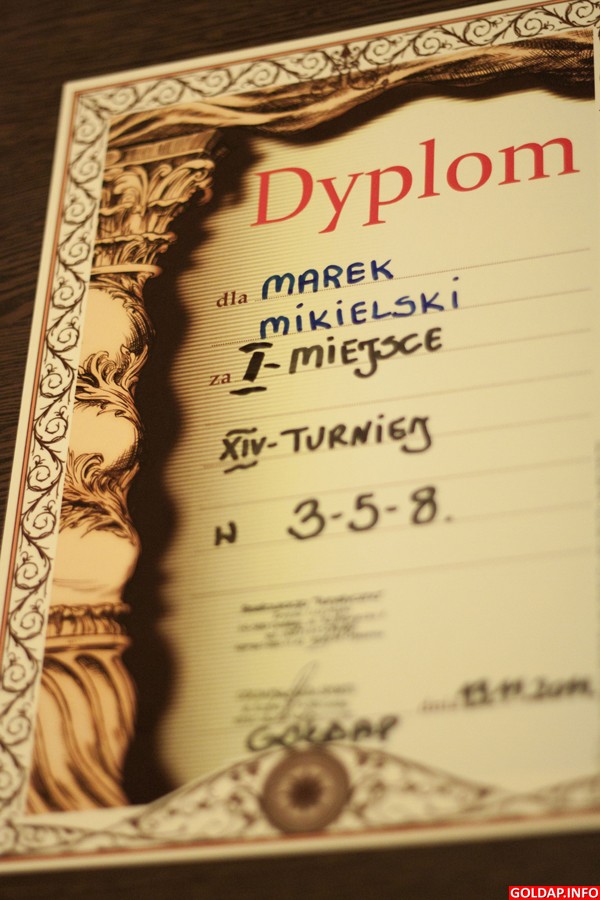 Dyplom
dla MAREK
MIKIELSKI
za I-MIEJSCE
XIV-TURNIEJ
3-5-8.
GOŁDAP
GOLDAP.INFO